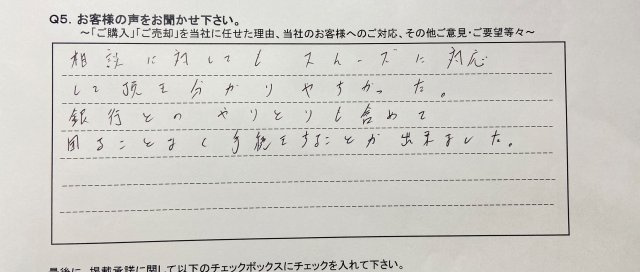 Q5. お客様の声をお聞かせ下さい。
～「ご購入」「ご売却」を当社に任せた理由、当社のお客様へのご対応、その他ご意見・ご要望等々～
相談に対しても スムーズに 対応
して頂き分かりやすかった。
銀行とのやりとりも含めて
困ることなく手続きをすることが出来ました。
最後に、掲載承諾に関して以下のチェックボックスにチェックを入れて下さい。